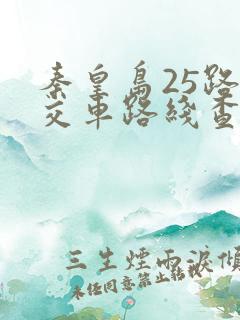 秦皇島25路
交車路綫查
三生煙雨淚傾
未经同意禁止转载